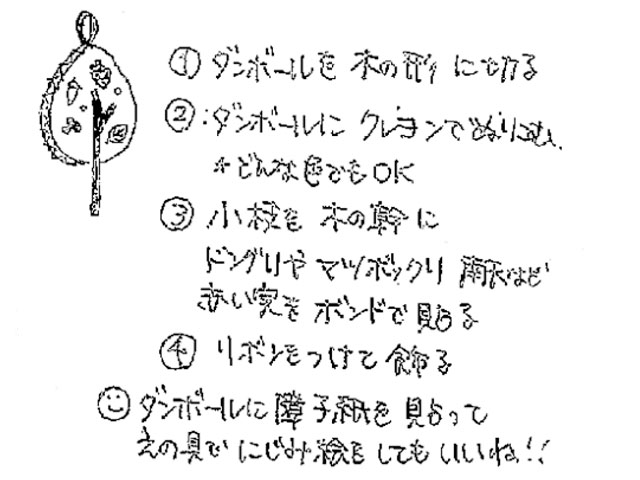 ① ダンボールを 木の形 に切る
② : ダンボールに クレヨンでぬりこむ、
* どんな色でもOK
③ 小枝を 木の幹に
ドングリや マツボックリ など
赤い実を ボンドで 貼る
④ リボンをつけて 飾る
ダンボールに 障子紙を 貼って
えの具で にじみ絵を しても いいね!!